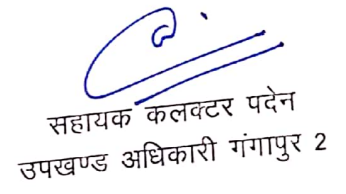 सहायक कलक्टर पदेन
उपखण्ड अधिकारी गंगापुर 2